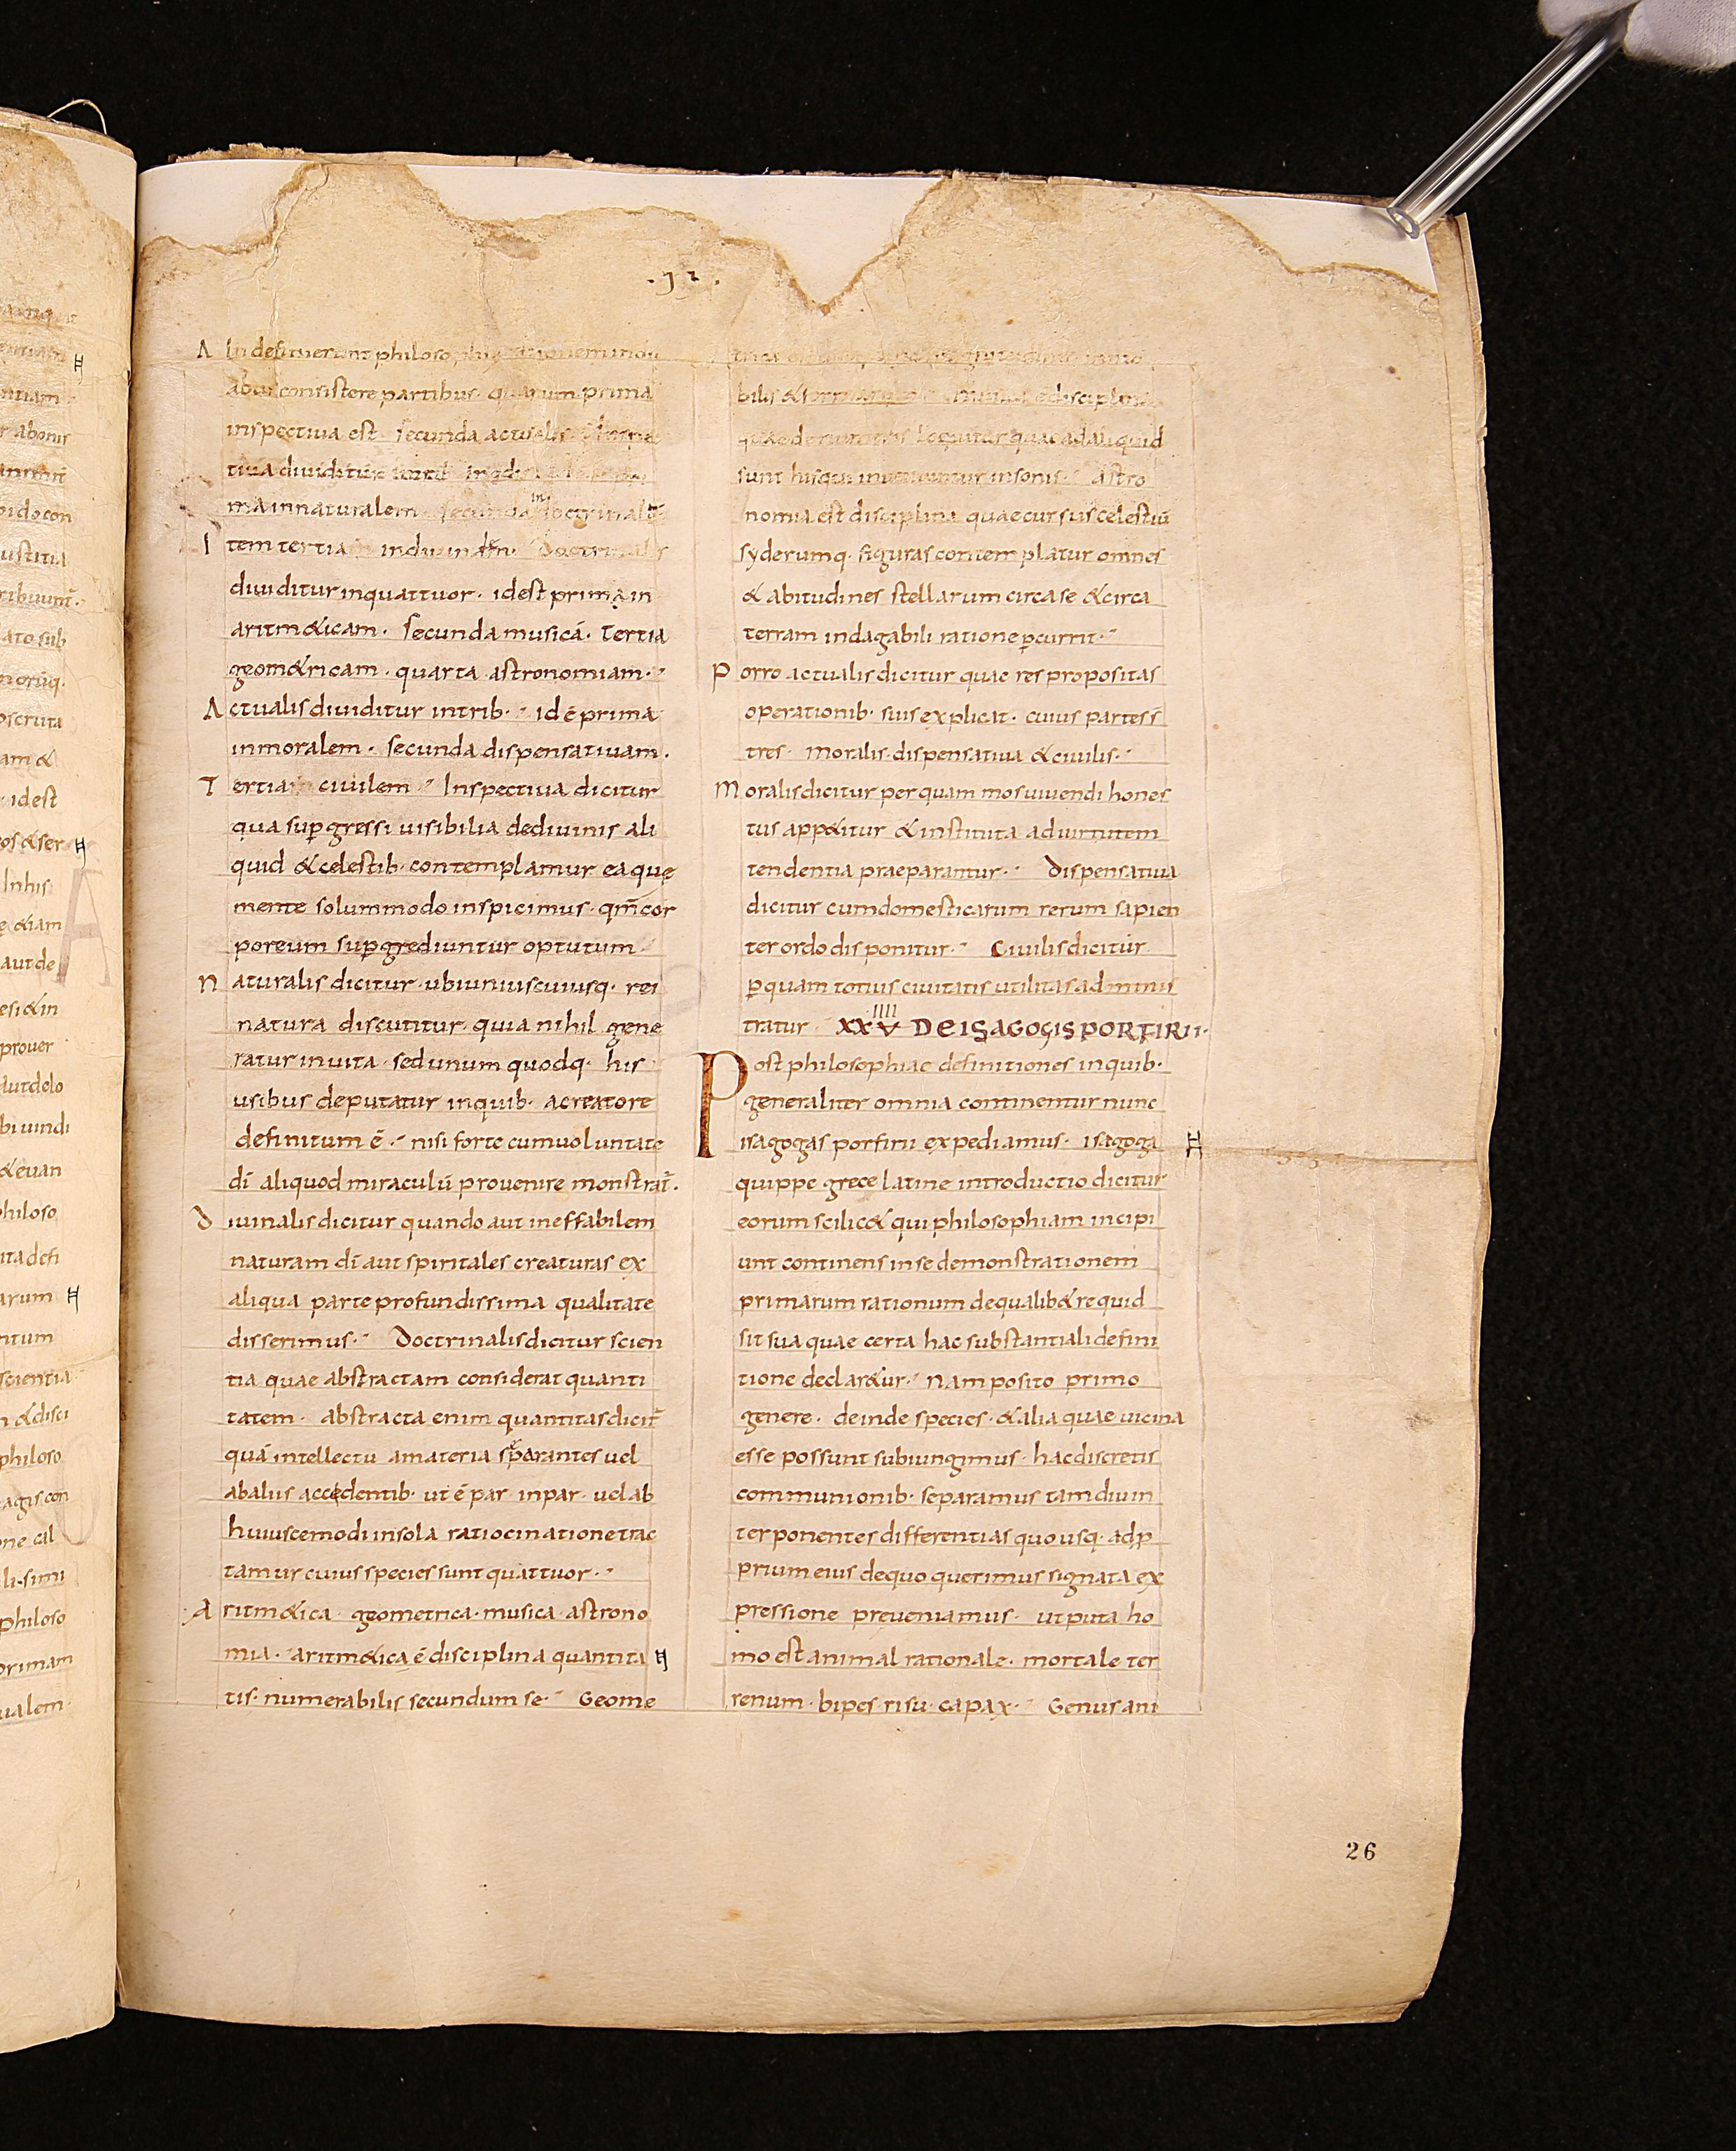 .12.
Alii definierunt philosophiae rationem in du
abus consistere partibus· quarum prima
inspectiua est secunda actualis
tiua diuiditur
ma in naturalem secunda in doctrinalē
Item tertia in diuinam· Doctrinalis
diuiditur in quattuor· id est prima in
aritm&icam· Secunda musicā· Tertia
geom&ricam· quarta astronomiam·
Actualis diuiditur in trib· id ē prima
in moralem· secunda dispensatiuam·
Tertia ciuilem Inspectiua dicitur
qua sup̱gressi uisibilia de diuinis ali
quid & celestib· contemplamur ea quę
mente solummodo inspicimus· qm̄ cor
poreum sup̱grediuntur optutum
Naturalis dicitur· ubi uniuscuiusq· rei
natura discutitur quia nihil gene
ratur in uita· sed unum quodq· his
usibus deputatur in quib· a creatore
definitum ē· nisi forte cum uoluntate
dī aliquod miraculū prouenire monstrat̄·
Diuinalis dicitur quando aut ineffabilem
naturam dī aut spiritales creaturas ex
aliqua parte profundissima qualitate
disserimus· Doctrinalis dicitur scien
tia quae abstractam considerat quanti
tatem· abstracta enim quantitas dicit̄
quā intellectu a materia separantes uel
ab aliis accedentib· ut ē par· inpar· uel ab
huiuscemodi in sola ratiocinatione trac
tamur cuius species sunt quattuor·
Aritm&ica· geometrica· musica· astrono
mia· aritm&ica ē disciplina quantita
tis· numerabilis secundum se· Geome
bilis & disciplina
quae de numeris loquitur quae ad aliquid
sunt his qui inueniuntur in sonis· astro
nomia est disciplina quae cursus celestiū
syderumq· figuras contemplatur omnes
& abitudines stellarum circa se & circa
terram indagabili ratione p̱currit·
Porro actualis dicitur quae res propositas
operationib· suis explicat· cuius partes s̄
tres· Moralis· dispensatiua & ciuilis·
Moralis dicitur per quam mos uiuendi hones
tus app&itur & instituta ad uirtutem
tendentia praeparantur· Dispensatiua
dicitur cum domesticarum rerum sapien
ter ordo disponitur· Ciuilis dicitur
p̱ quam totius ciuitatis utilitas adminis
tratur XXV IIII DE ISAGOGIS PORFIRII·
Post philosophiae definitiones in quib·
generaliter omnia continentur nunc
isagogas porfirii expediamus· isagoga
quippe grece latine introductio dicitur
eorum scilic& qui philosophiam incipi
unt continens in se demonstrationem
primarum rationum de qualib& re quid
sit sua quae certa hac substantiali defini
tione declar&ur· Nam posito primo
genere· deinde species· & alia quae uicina
esse possunt subiungimus· hac discretis
communionib· separamus tam diu in
terponentes differentias quo usq· ad p̱
prium eius de quo querimus signata ex
pressione preueniamus· ut puta ho
mo est animal rationale· mortale ter
renum· bipes· risu· capax· Genus ani
26